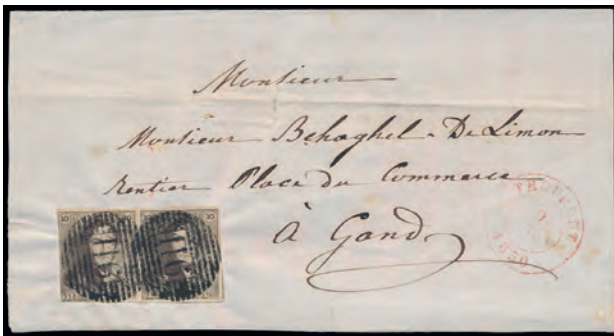 Monsieur
Monsieur Behaghel - De Limon
Rentier Place du Commerce
À Gand
10 10
9
1850